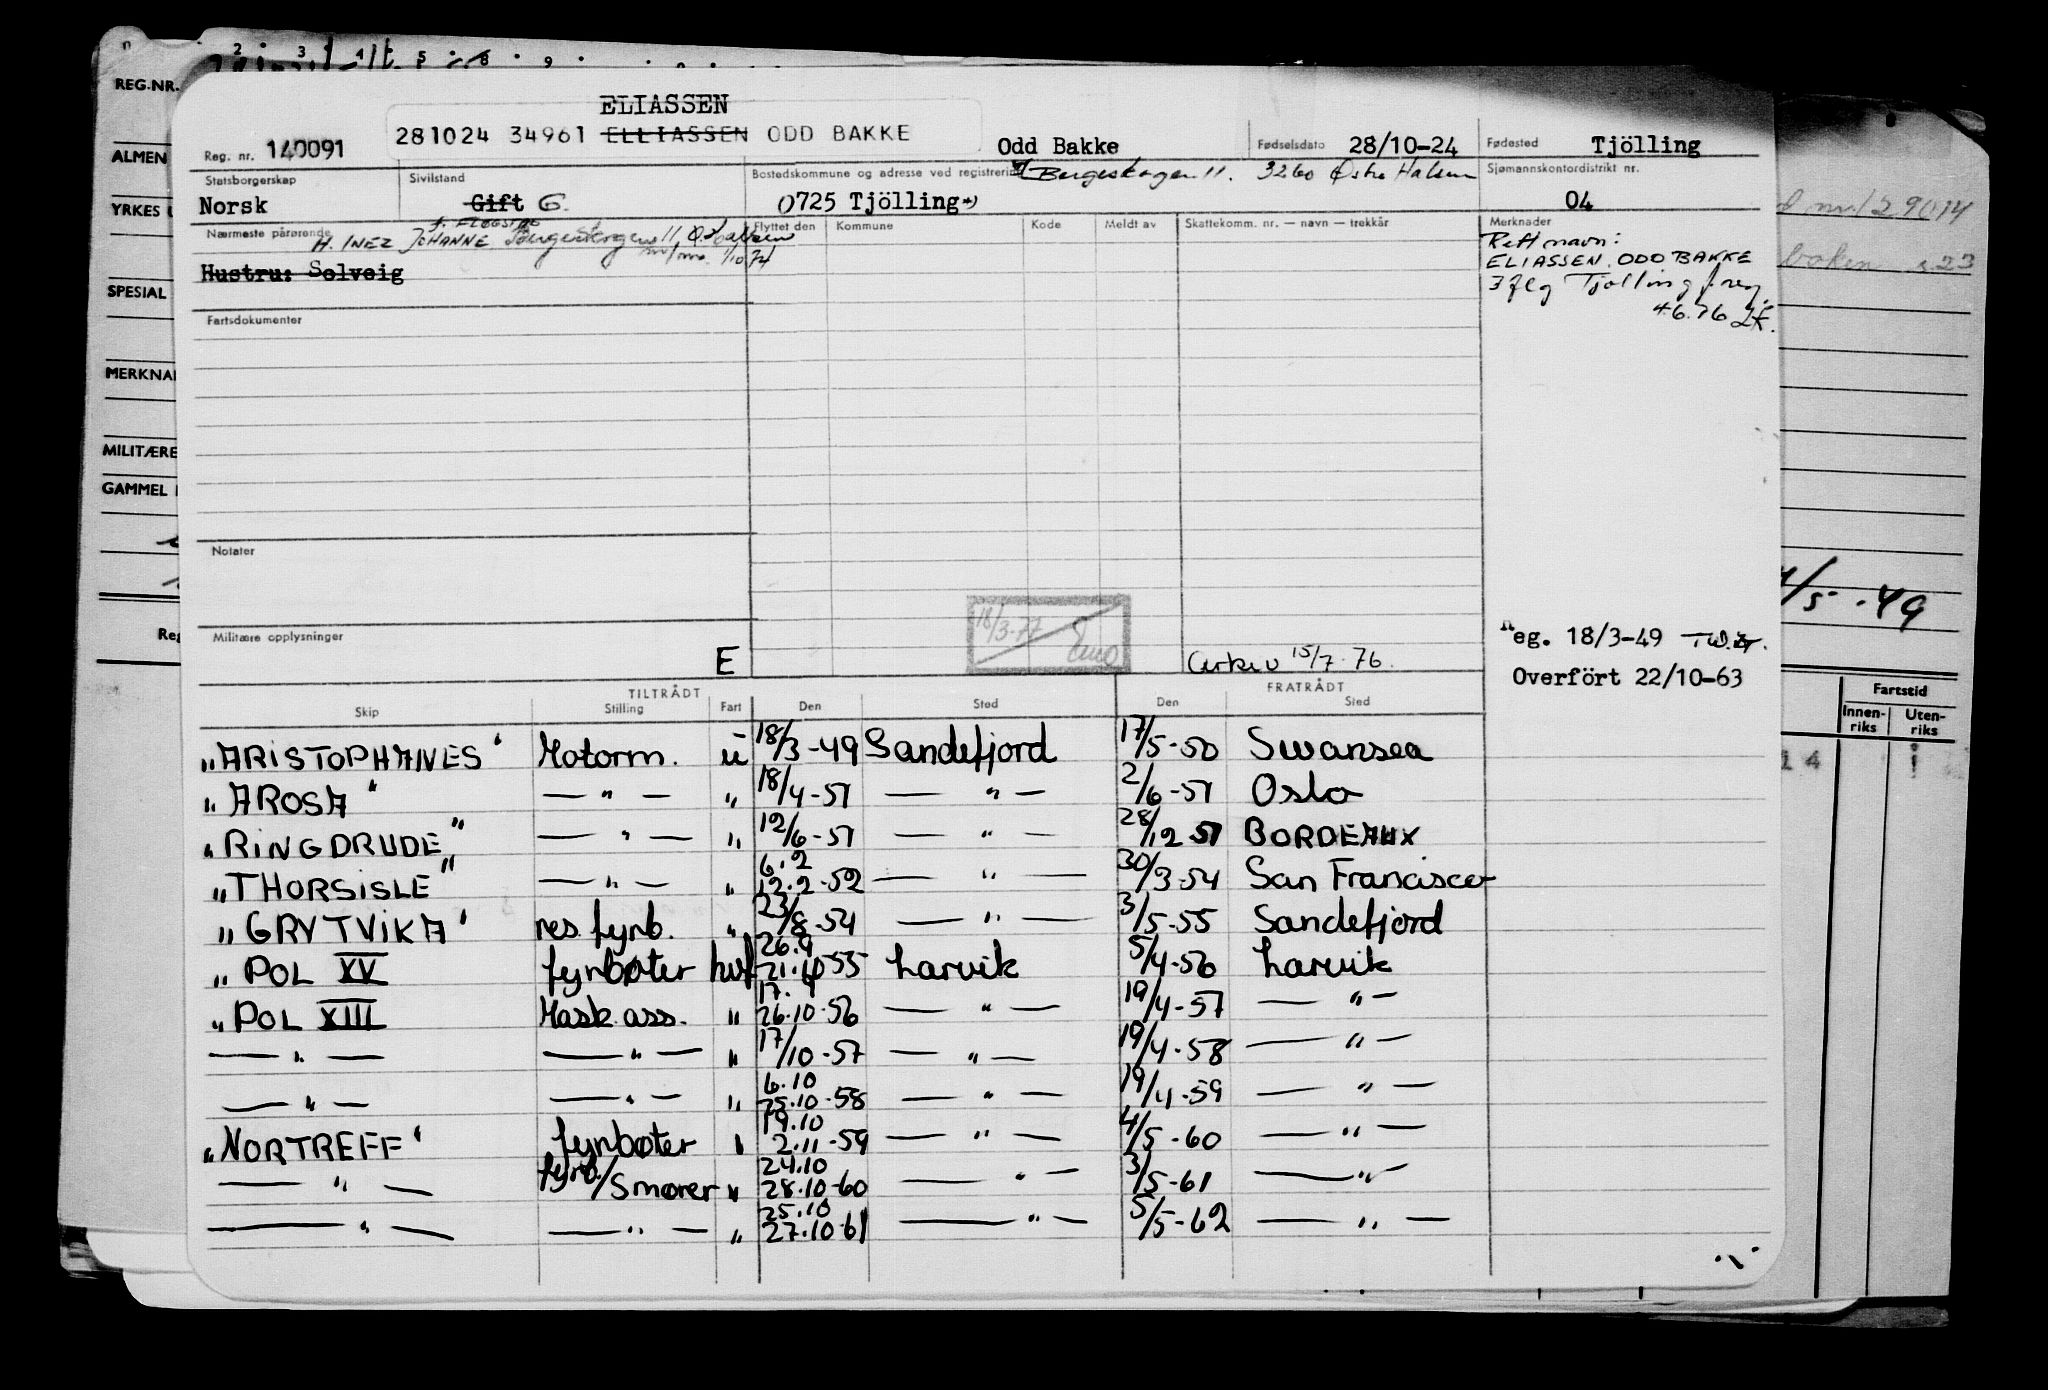 REG.NR.
2 3 4 5 8 9
ALMEN
YRKES
SPESIAL
MERKNA
MILITÆRE
GAMMEL
Reg
ELIASSEN
Reg. nr. 140091 281024 34961 ELLIASSEN ODD BAKKE Odd Bakke Fødselsdato 28/10-24 Fødested Tjölling
Statsborgerskap Sivilstand Bostedskommune og adresse ved registrering Bergeskogen 11. 3260 Østre Halsen Sjømannskontordistrikt nr.
Norsk Gift G. 0725 Tjölling 04
Nærmeste pårørende Flyttet den Kommune Kode Meldt av Skattekomm. nr. — navn — trekkår Merknader
H. INEZ JOHANNE Bergeskogen 11, Ø. Halsen
1/10 74
Hustru: Solveig
Rett navn:
ELIASSEN. ODD BAKKE
3flg Tjølling f.reg.
4.6.76
Fartsdokumenter
Notater
Militære opplysninger E
18/3-77
Arkiv 15/7-76.
Reg. 18/3-49
Overfört 22/10-63
TILTRÅDT FRATRÅDT
Skip Stilling Fart Den Sted Den Sted
"ARISTOPHANES" Motorm. u 18/3-49 Sandefjord 17/5-50 Swansea
"AROSA" — " — " 18/4-51 — " — 2/6-51 Oslo
"RINGDRUDE" — " — " 12/6-51 — " — 28/12 51 BORDEAUX
"THORSISLE" — " — " 6.2 12.2-52 — " — 30/3-54 San Francisco
"GRYTVIKA" res. fyrb. " 23/8-54 — " — 3/5-55 Sandefjord
"POL XV fyrbøter hvf 26.9 21.10 55 Larvik 5/4-56 Larvik
"POL XIII Mask. ass. " 17.9 26.10-56 — " — 19/4-57 — " —
— " — — " — " 17/10-57 — " — 19/4-58 — " —
— " — — " — " 6.10 25.10-58 — " — 19/4-59 — " —
"NORTREFF" fyrbøter " 19.10 2.11-59 — " — 4/5-60 — " —
— " — fyrb./Smører " 24.10 28.10-60 — " — 3/5-61 — " —
— " — — " — " 25.10 27.10 61 — " — 5/5-62 — " —
29014
boken
23
/5-49
Fartstid
Innen-riks Uten-riks
14